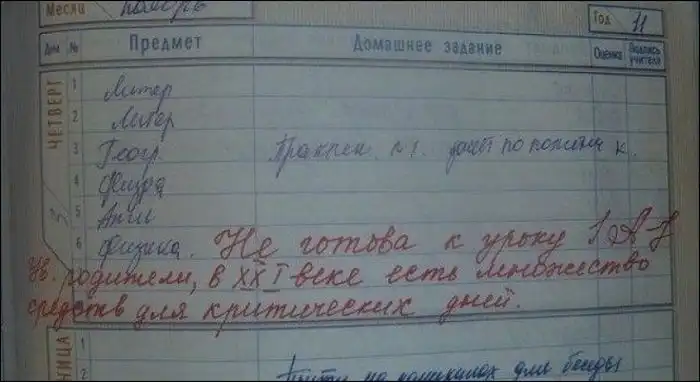 Месяц ноябрь Год 11
Дни № Предмет Домашнее задание Оценка Подпись учителя
ЧЕТВЕРГ
1 Литер
2 Литер
3 Геогр. Практич.
4 Физра
5 Англ
6 Физика. Не готова к уроку
Ув. родители, в XXI веке есть множество
средств для критических дней.
1
2 для беседы